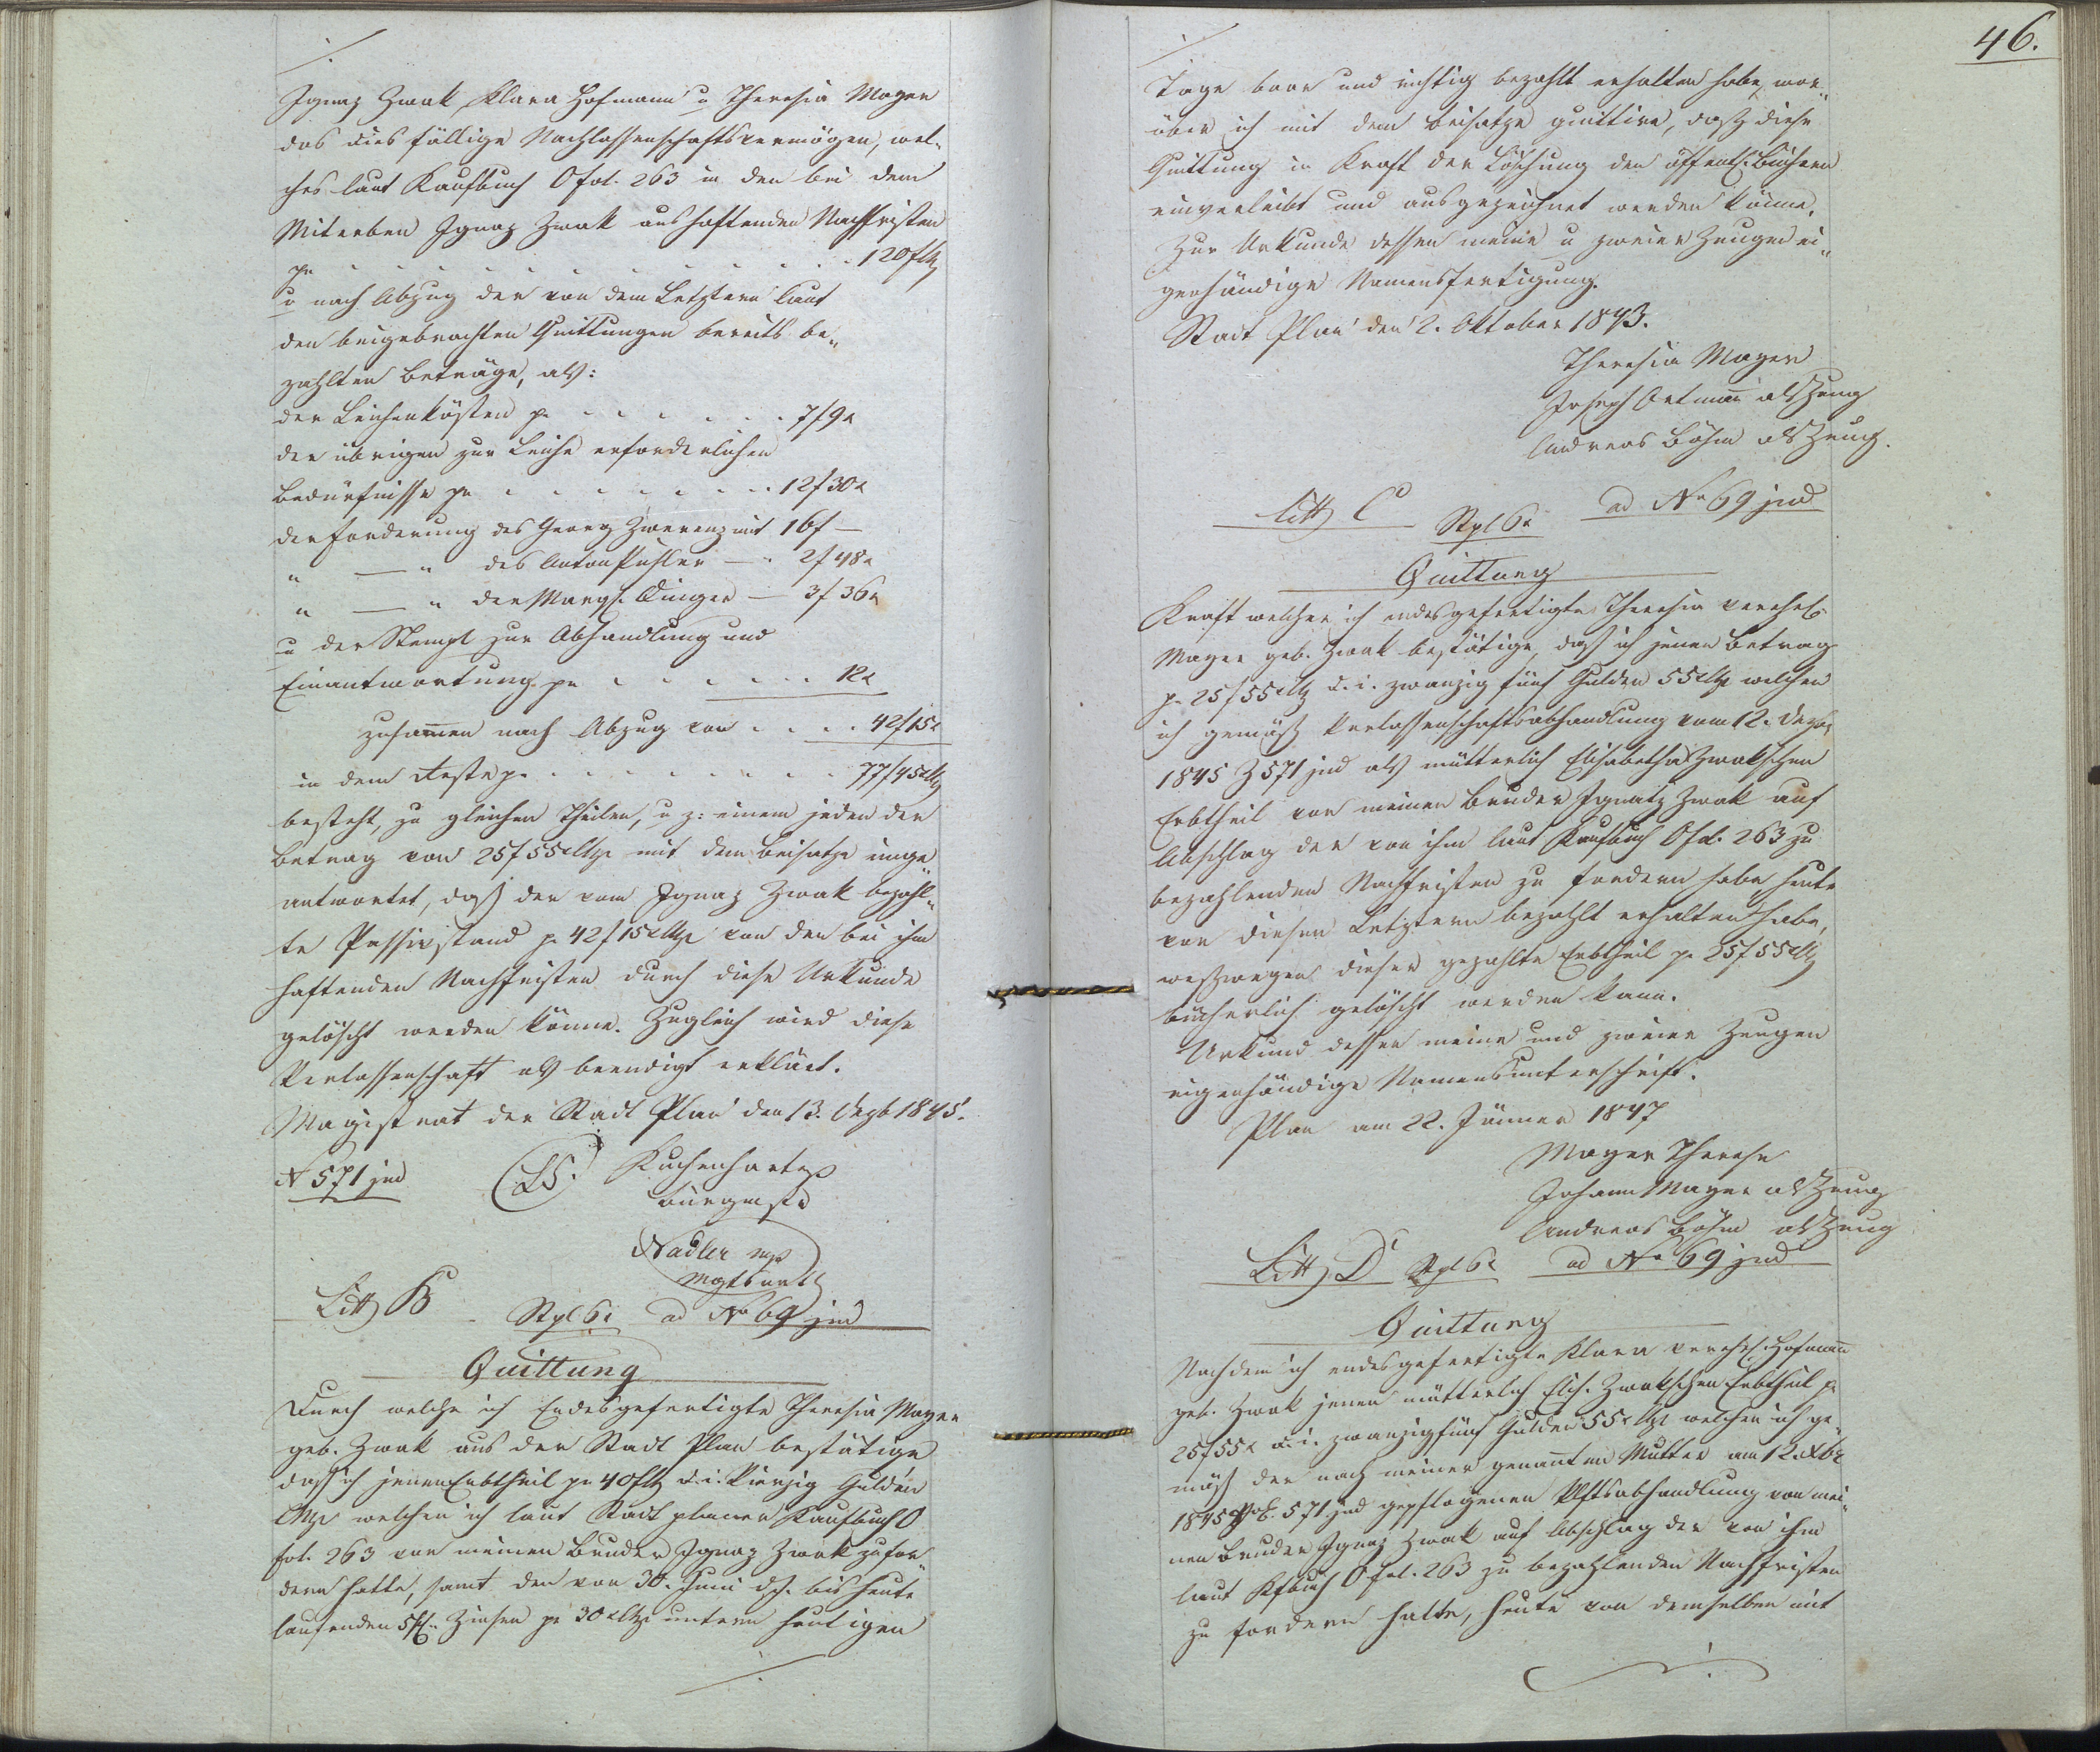 Ignaz Zwak, Klara Hofmann u Theresia Mayer
das dies fällige Nachlassenschaftsvermögen, wel-
ches laut Kaufbuch O fol. 263 in den bei dem
Miterben Ignaz Zwak aushaftenden Nachfristen
pr . . . . . . . . . . . . . 120 f
u nach Abzug der von dem Letztern laut
den beigebrachten Quittungen bereits be„
zahlten Beträge, als:
der Leichenkösten pr . . . . . . . 7 f 9 x
der übrigen zur Leiche erforderlichen
Bedürfnisse pr . . . . . . . . 12 f 30 x
der Forderung des Georg Zwerenz mit 16 f —
„ — „ des Anton — 2 f 48 x
„ — „ der — 3 f 36 x
u der Stempl zur Abhandlung und
Einantwortung pr . . . . . . 12 x
zusamen nach Abzug von . . . . 42 f 15 x
in dem Reste pr . . . . . . . . . 77 f 45 x
besteht, zu gleichen Theilen, u z: einem jeden der
Betrag von 25 f 55 x CMze mit dem Beisatze einge
antwortet, daß der vom Ignaz Zwak bezahl„
te Passivstand pr 42 f 15 x CMze von den bei ihm
haftenden Nachfristen durch diese Urkunde
gelöscht werden könne. Zugleich wird diese
Verlassenschaft als beendigt erklärt.
Magistrat der Stadt Plan den 13. Dezb 1845.
N 571 jud (LS.) Kuchenhart
Bürgmstr
Nadler mp
Litt B Stpl 6 x ad Nro 69 jud
Quittung
Durch welche ich Endesgefertigte Theresia Mayer
geb. Zwak aus der Stadt Plan bestätige
daß ich jenen Erbtheil pr 40 f d. i. Vierzig Gulden
CMze welchen ich laut Stadt planer Kaufbuch O
fol. 263 von meinem Bruder Ignaz Zwak zu for„
dern hatte, samt den von 30. Juni dJ. bis heute
laufenden 5 Zinsen pr 30 x CMze unterm heutigen
46.
Tage baar und richtig bezahlt erhalten habe, wor„
über ich mit dem Beisatze quittire, daß diese
Quittung in Kraft der Löschung den öffentl. Büchern
einverleibt und ausgezeichnet werden könne.
Zur Urkunde dessen meine u zweier Zeugen ei„
genhändige Namensfertigung.
Stadt Plan den 2. Oktober 1843.
Theresia Mayer
Joseph Ortmañ als Zeug
Andreas Böhm als Zeug.
Litt C Stpl 6 x ad Nro 69 jud
Quittung
Kraft welcher ich endesgefertigte Theresia verehel.
Mayer geb. Zwak bestätige, daß ich jenen Betrag
pr 25 f 55 x CMz d. i. zwanzig fünf Gulden 55 x CMze welchen
ich gemäß Verlassenschaftsabhandlung vom 12. Dezb
1845 Z 571 jud als mütterlich Elisabetha Zwakschen
Erbtheil von meinem Bruder Ignatz Zwak auf
Abschlag der von ihm laut Kaufbuch O fol. 263 zu
bezahlenden Nachfristen zu fordern habe heute
von diesem Letztern bezahlt erhalten habe,
weßwegen dieser gezahlte Erbtheil pr 25 f 55 x CMz
bücherlich gelöscht werden kann.
Urkund dessen meine und zweier Zeugen
eigenhändige Namensunterschrift.
Plan am 22. Jänner 1847
Mayer Therese
Johann Mayer als Zeug
Andreas Böhm als Zeug
Litt D Stpl 6 x ad Nro 69 jud
Quittung
Nachdem ich endesgefertigte Klara verehel. Hofmann
geb. Zwak jenen mütterlich Elis. Zwakschen Erbtheil pr
25 f 55 x d. i. zwanzigfünf Gulden 55 x CMze welchen ich ge„
mäß der nach meiner genannten Mutter am 12. Xbr
1845 571 jud gepflogenen Vlftsabhandlung von mei„
nem Bruder Ignaz Zwak auf Abschlag der von ihm
laut Kfbuch O fol. 263 zu bezahlenden Nachfristen
zu fordern hatte, heute von demselben mit